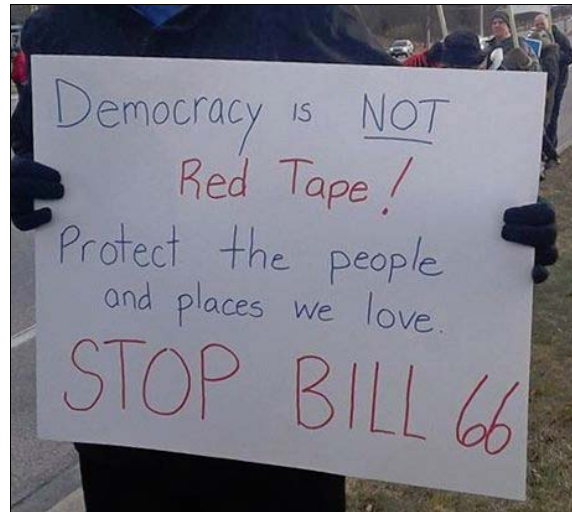 Democracy is NOT
Red Tape!
Protect the people
and places we love.
STOP BILL 66